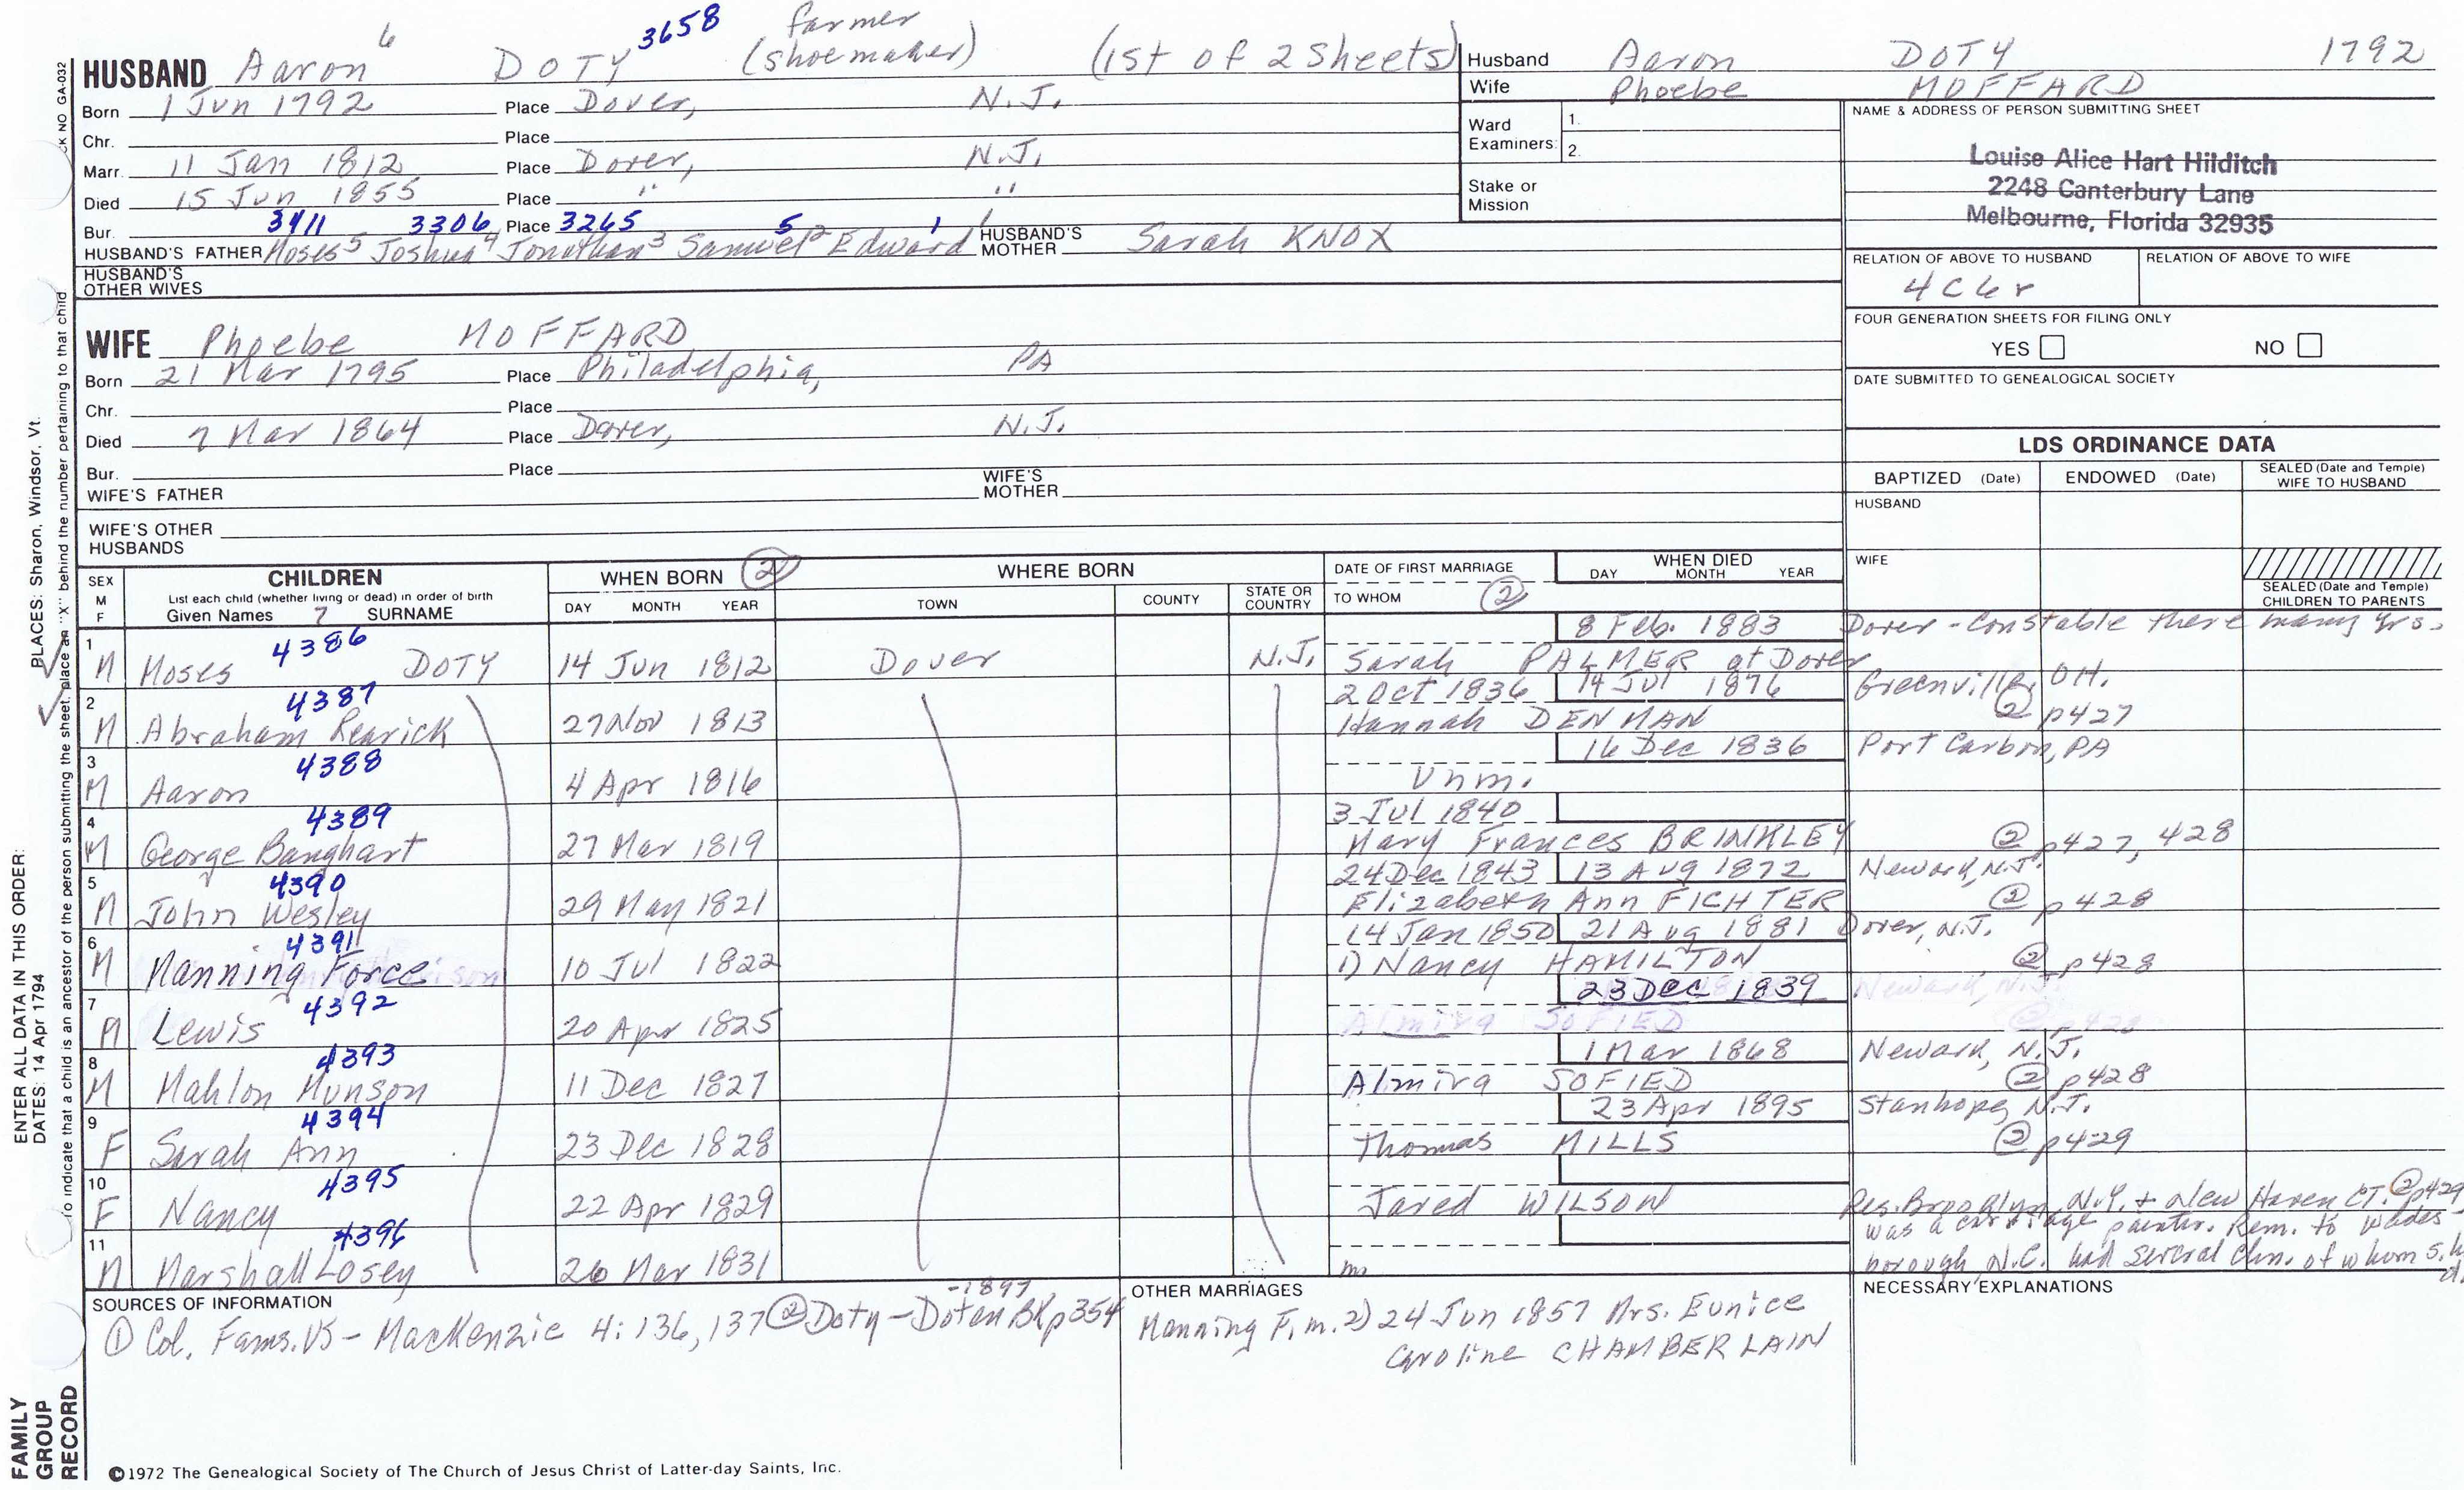 farmer
HUSBAND Aaron 6 DOTY 3658 (shoemaker) (1st of 2 Sheets)
Born 1 Jun 1792 Place Dover, N.J.
Chr. Place
Marr. 11 Jan 1812 Place Dover, N.J.
Died 15 Jun 1855 Place " "
Bur. 3411 3306 Place 3265 5 1
HUSBAND'S FATHER Moses 5 Joshua 4 Jonathan 3 Samuel 2 Edward 1 HUSBAND'S MOTHER Sarah KNOX
HUSBAND'S OTHER WIVES
WIFE Phoebe MOFFARD
Born 21 Mar 1795 Place Philadelphia, PA
Chr. Place
Died 7 Mar 1864 Place Dover, N.J.
Bur. Place
WIFE'S FATHER WIFE'S MOTHER
WIFE'S OTHER HUSBANDS
Husband Aaron DOTY 1792
Wife Phoebe MOFFARD
Ward Examiners: 1. 2.
Stake or Mission
NAME & ADDRESS OF PERSON SUBMITTING SHEET
Louise Alice Hart Hilditch
2248 Canterbury Lane
Melbourne, Florida 32935
RELATION OF ABOVE TO HUSBAND RELATION OF ABOVE TO WIFE
4C6r
FOUR GENERATION SHEETS FOR FILING ONLY
YES NO
DATE SUBMITTED TO GENEALOGICAL SOCIETY
LDS ORDINANCE DATA
BAPTIZED (Date) ENDOWED (Date) SEALED (Date and Temple) WIFE TO HUSBAND
HUSBAND
WIFE
SEALED (Date and Temple) CHILDREN TO PARENTS
SEX M F CHILDREN WHEN BORN ② WHERE BORN DATE OF FIRST MARRIAGE WHEN DIED
List each child (whether living or dead) in order of birth DAY MONTH YEAR
Given Names 7 SURNAME DAY MONTH YEAR TOWN COUNTY STATE OR COUNTRY TO WHOM ②
8 Feb. 1883 Dover - Constable there many yrs.
1 M Moses 4386 DOTY 14 Jun 1812 Dover N.J. Sarah PALMER at Dover
2 Oct 1836 14 Jul 1876 Greenville, OH.
2 M Abraham Rearick 4387 27 Nov 1813 Hannah DENMAN ② p427
16 Dec 1836 Port Carbon, PA
3 M Aaron 4388 4 Apr 1816 Unm.
3 Jul 1840
4 M George Banghart 4389 27 Mar 1819 Mary Frances BRINKLEY ② p427, 428
24 Dec 1843 13 Aug 1872 Newark, N.J.
5 M John Wesley 4390 29 May 1821 Elizabeth Ann FICHTER ② p428
14 Jan 1850 21 Aug 1881 Dover, N.J.
6 M Manning Force 4391 10 Jul 1822 1) Nancy HAMILTON ② p428
23 Dec 1839 Newark, N.J.
7 M Lewis 4392 20 Apr 1825 Almira SOFIED ② p428
1 Mar 1868 Newark, N.J.
8 M Mahlon Munson 4393 11 Dec 1827 Almira SOFIED ② p428
23 Apr 1895 Stanhope, N.J.
9 F Sarah Ann 4394 23 Dec 1828 Thomas MILLS ② p429
10 F Nancy 4395 22 Apr 1829 Jared WILSON Res. Brooklyn, N.Y. + New Haven CT. ② p429
was a carriage painter. Rem. to Wades-
11 M Marshall Losey 4396 26 Mar 1831 m. borough, N.C. had several chn. of whom s. h
d.
SOURCES OF INFORMATION
-1897
① Col. Fams. US - MacKenzie 4: 136, 137 ② Doty-Doten Bk p354
OTHER MARRIAGES
Manning F. m. 2) 24 Jun 1857 Mrs. Eunice
Caroline CHAMBERLAIN
NECESSARY EXPLANATIONS
©1972 The Genealogical Society of The Church of Jesus Christ of Latter-day Saints, Inc.
FAMILY GROUP RECORD
ENTER ALL DATA IN THIS ORDER:
DATES: 14 Apr 1794
PLACES: Sharon, Windsor, Vt.
To indicate that a child is an ancestor of the person submitting the sheet, place an "X" behind the number pertaining to that child
CK NO GA-032